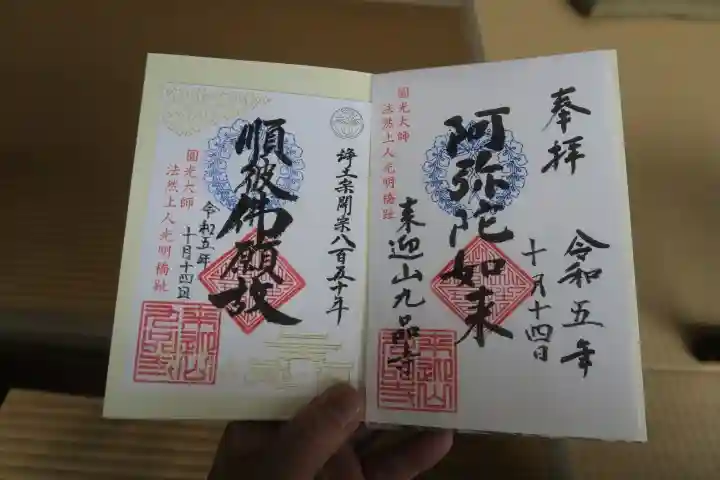 奉拝
令和五年
十月十四日
阿弥陀如来
来迎山九品寺
圓光大師
法然上人光明橋趾
浄土宗開宗八百五十年
順彼佛願故
令和五年
十月十四日
圓光大師
法然上人光明橋趾